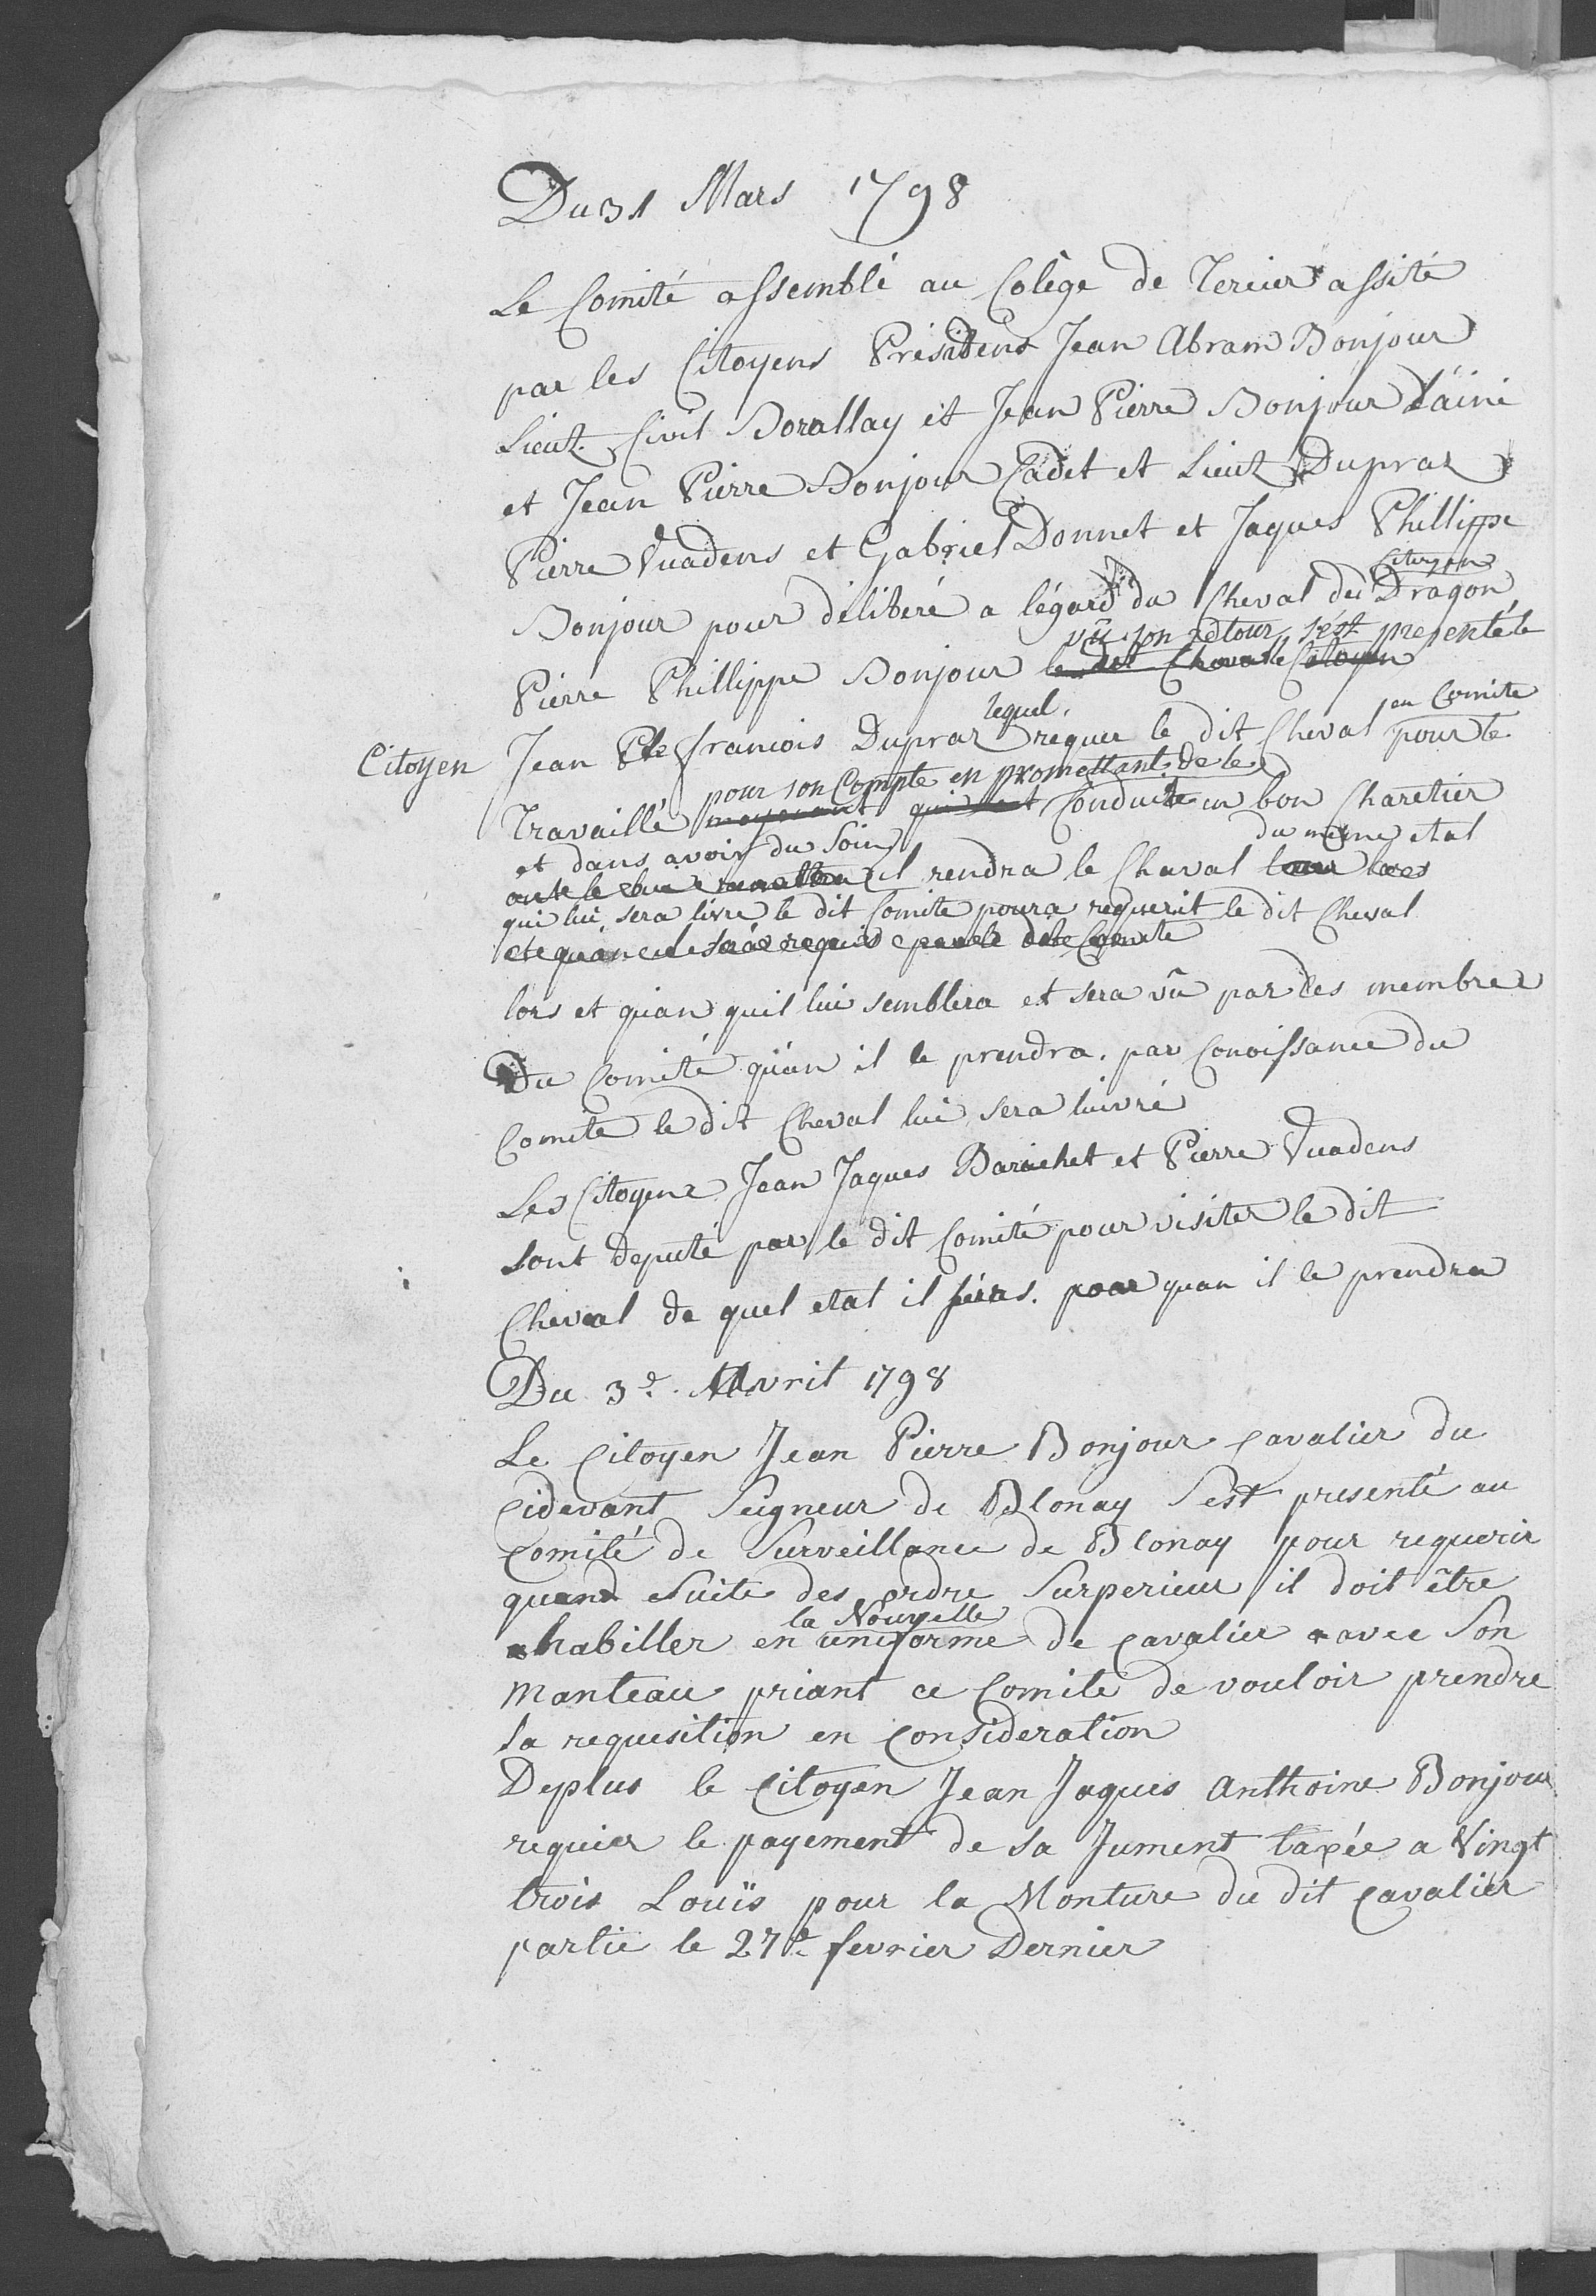 Du 31 Mars 1798
Le Comité assemblé au Colège de Tercier assité
par les Citoyens Présidens Jean Abram Bonjour
Lieut. Civil Borallay et Jean Pierre Bonjour l'ainé
et Jean Pierre Bonjour Cadet et Lieut Dupraz
Pierre Vuadens et Gabriel Donnet et Jaques Phillippe
Citoyen
Bonjour pour délibéré a légard du Cheval du Dragon
vû son retour, sést presenté le
Pierre Phillippe Bonjour le dit Cheval le Citoyen
lequel. au Comite
Citoyen Jean francois Dupraz requer le dit Cheval pour le
pour son Compte en promettant de le
Travaillé moyenant Conduite un bon Charetier
et dans avoir du Soin du meme etat
il rendra le Chaval
qui lui sera livre le dit Comite poura requerit le dit Cheval
lors et quan quil lui semblera et sera vû par des membres
Du Comité qúan il le prendra. par Conoissance du
Comite le dit Cheval lui sera luivré
Les Citoyens Jean Jaques Barichet et Pierre Vuadens
sont deputé par le dit Comité pour visiter le dit
Cheval de quel etat il séras. pour quan il le prendra
Du 3e. Avril 1798
Le Citoyen Jean Pierre Bonjour Cavalier du
Cidevant Seigneur de Blonay Sest presenté au
Comité de Surveillance de Blonay pour requerir
quand Suite des ordre Surperieur il doit être
la Nouvelle
habiller en uniforme de Cavalier avec Son
Manteau priant ce Comite de vouloir prendre
sa requisition en Consideration
Deplus le Citoyen Jean Jaques Anthoine Bonjour
requier le payement de sa Jument taxée a Vingt
trois Louïs pour la Monture du dit Cavalier
partie le 27e. fevrier Dernier